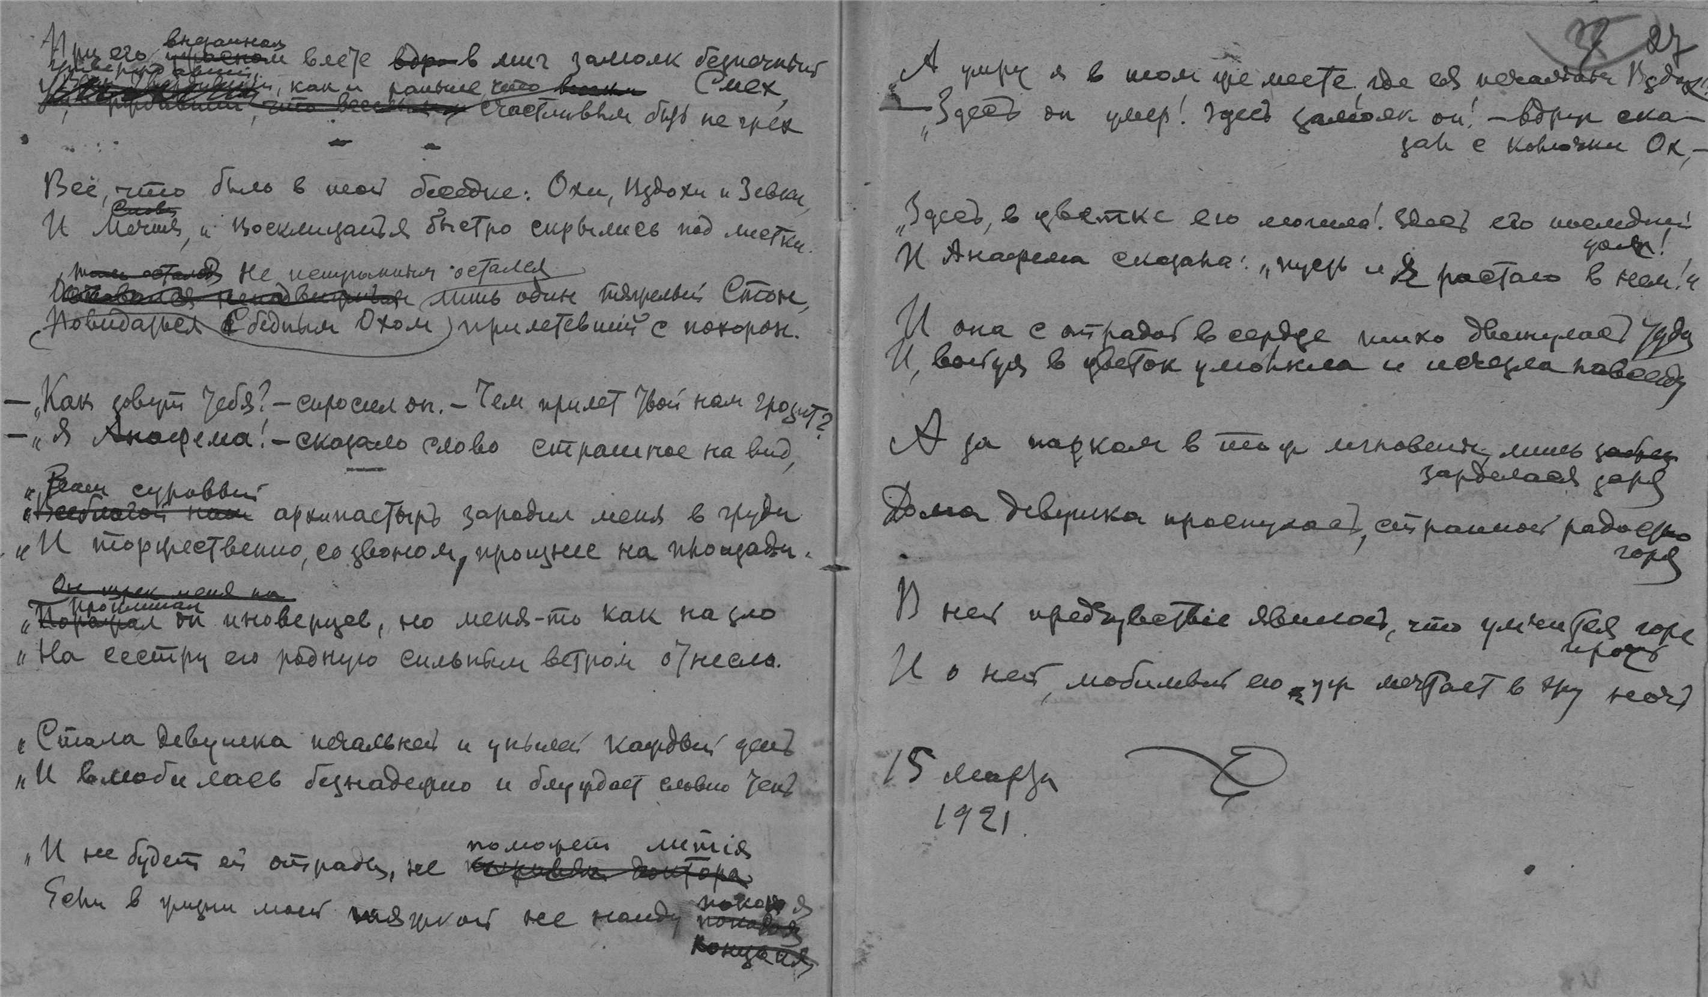 При его внезапном влете в миг замолк беспечный Смех,
утверждавший, как и раньше, что
счастливым быть не грех
Всё, что было в той беседке: Охи, Вздохи и Зевки,
И Слова, и Восклицанья быстро скрылись под листки.
Не испугавшися остался
лишь один тяжелый Стон,
Повидаться с бедным Охом прилетевший с похорон.
— „Как зовут тебя? — спросил он. — Чем прилет твой нам грозит?
— „Я Анафема! — сказало слово страшное на вид,
„Ваш суровый
архипастырь зародил меня в груди
„И торжественно, со звоном, произнес на площади.
Он изрек меня на
„Проклинал он иноверцев, но меня-то как на зло
„На сестру его родную сильным ветром отнесло.
„Стала девушка печальней и унылей каждый день
„И влюбилась безнадежно и блуждает словно тень
поможет
„И не будет ей отрады, не доктора
Если в жизни моей тяжкой не найду покоя я
покоя
конца я
27
А умру я в том же месте, где ея печальный Вздох!
„Здесь он умер! Здесь замолк он! — вдруг ска-
зал с колючки Ох, —
„Здесь, в цветке его могила! Здесь его последний
день!
И Анафема сказала: „пусть и я растаю в нем!"
И она с отрадой в сердце тихо двинулась туда
И, войдя в цветок умолкла и исчезла навсегда
А за парком в то ж мгновенье лишь
зарделася заря
Дома девушка проснулась, странной радостью
горя
В ней предчувствіе явилось, что умчится горе
прочь
И о ней, любимый ею, уж мечтает в эту ночь
15 марта
1921.